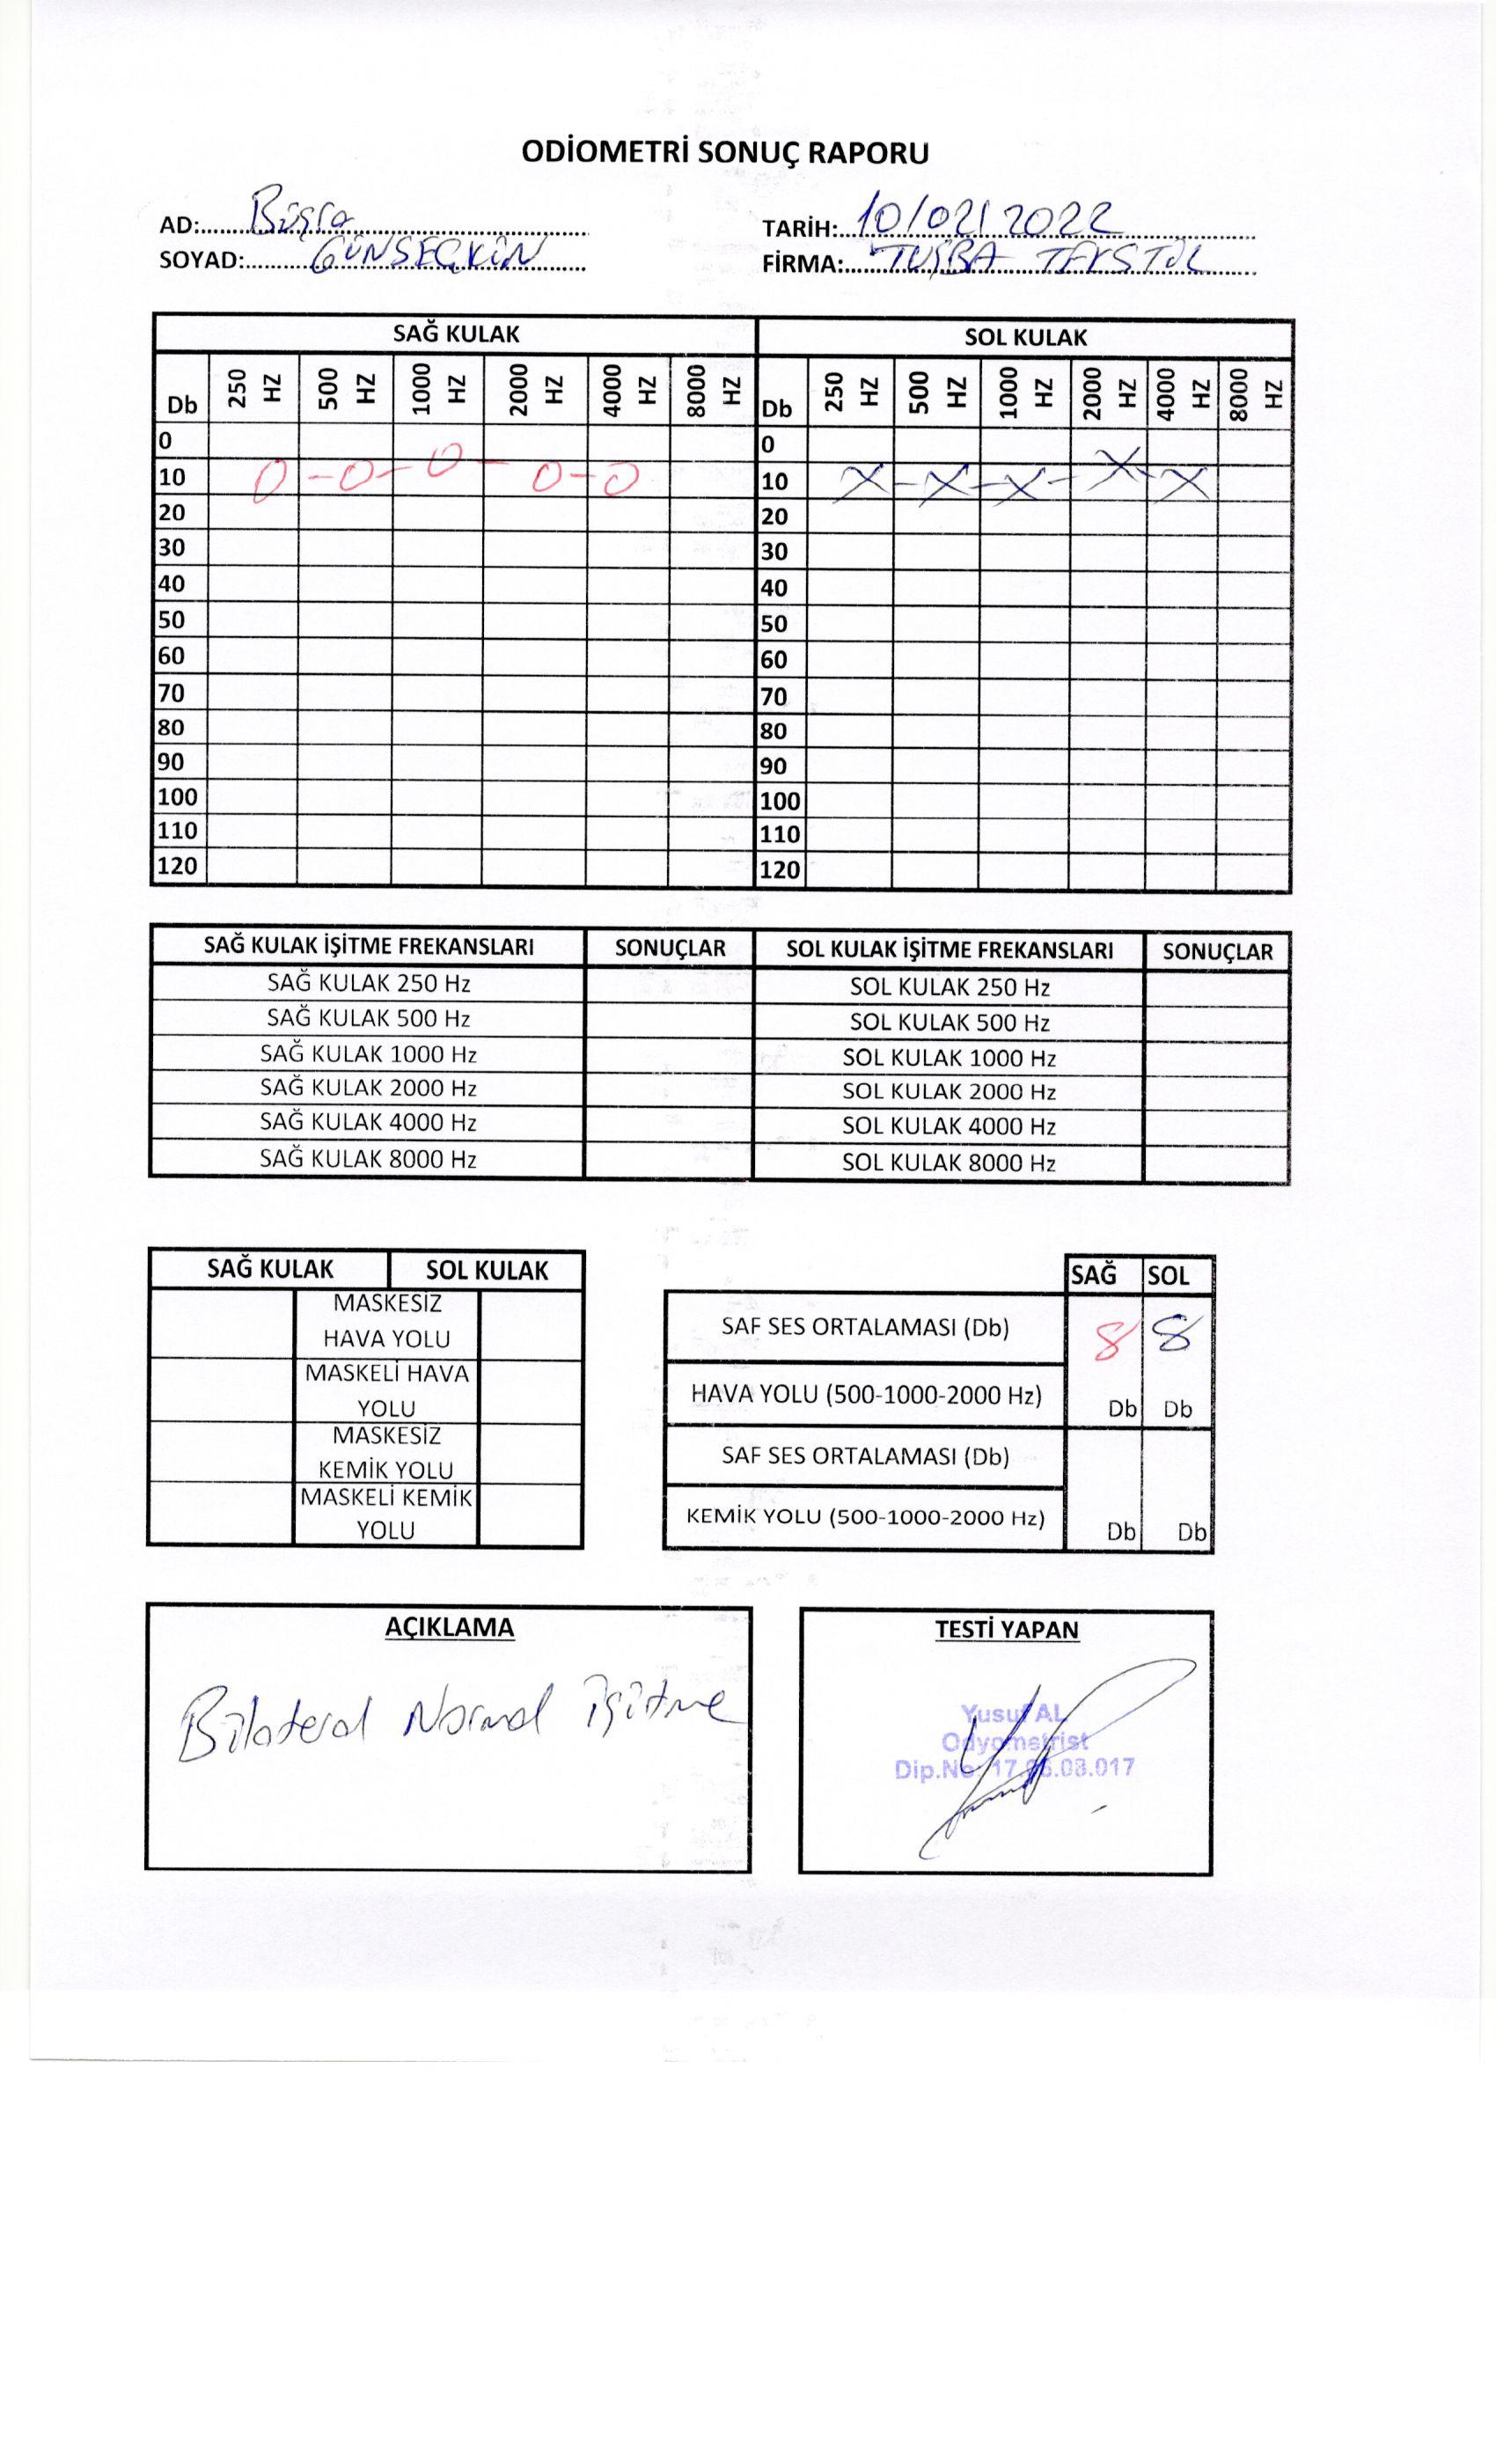 ODİOMETRİ SONUÇ RAPORU
AD:..... Büşra
TARİH:..... 10/02/2022
SOYAD:..... GÜNSEÇKİN
FİRMA:..... TUĞBA TEKSTİL
SAĞ KULAK SOL KULAK
Db 250 HZ 500 HZ 1000 HZ 2000 HZ 4000 HZ 8000 HZ Db 250 HZ 500 HZ 1000 HZ 2000 HZ 4000 HZ 8000 HZ
0 0
10 O-O-O-O-O 10 X-X-X-X-X
20 20
30 30
40 40
50 50
60 60
70 70
80 80
90 90
100 100
110 110
120 120
SAĞ KULAK İŞİTME FREKANSLARI SONUÇLAR SOL KULAK İŞİTME FREKANSLARI SONUÇLAR
SAĞ KULAK 250 Hz SOL KULAK 250 Hz
SAĞ KULAK 500 Hz SOL KULAK 500 Hz
SAĞ KULAK 1000 Hz SOL KULAK 1000 Hz
SAĞ KULAK 2000 Hz SOL KULAK 2000 Hz
SAĞ KULAK 4000 Hz SOL KULAK 4000 Hz
SAĞ KULAK 8000 Hz SOL KULAK 8000 Hz
SAĞ KULAK SOL KULAK
MASKESİZ
HAVA YOLU
MASKELİ HAVA
YOLU
MASKESİZ
KEMİK YOLU
MASKELİ KEMİK
YOLU
SAĞ SOL
SAF SES ORTALAMASI (Db) 8 8
HAVA YOLU (500-1000-2000 Hz) Db Db
SAF SES ORTALAMASI (Db)
KEMİK YOLU (500-1000-2000 Hz) Db Db
AÇIKLAMA
Bilateral Normal işitme
TESTİ YAPAN
Yusuf AL
Odyometrist
Dip.No: .08.017